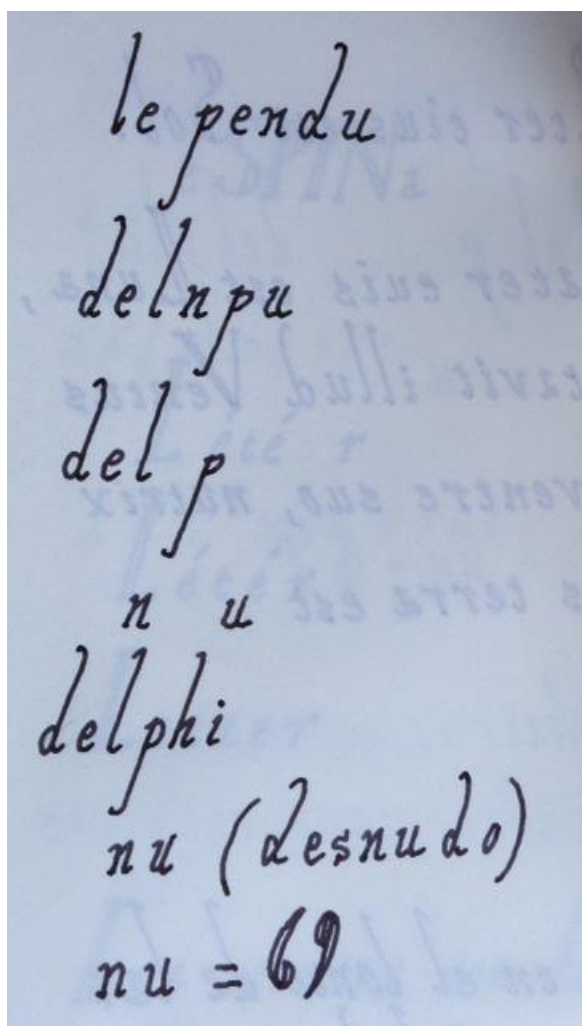 le pendu
delnpu
del p
n u
delphi
nu (desnudo)
nu = 69